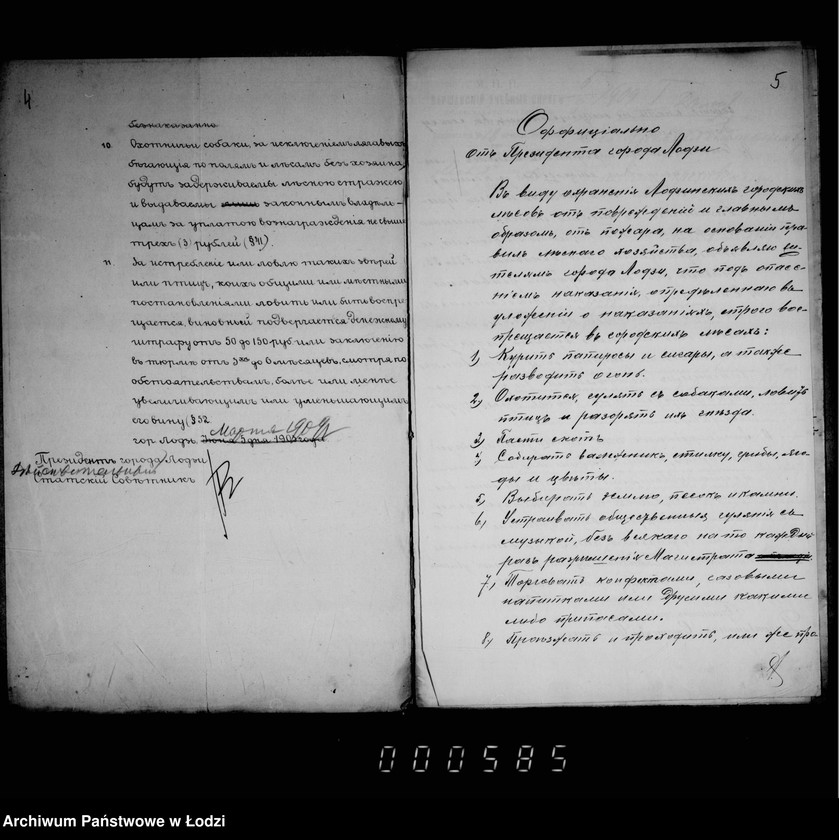 4
безнаказанно
10 Охотничьи собаки, за исключеніемъ лягавыхъ
бѣгающія по полямъ и лѣсамъ безъ хозяина,
будутъ задерживаемы лѣсною стражею
и выдаваемы законнымъ владѣль-
цамъ за уплатою вознагражденія не свыше
трехъ (3) рублей (§41).
11. За истребленіе или ловлю такихъ звѣрей
или птицъ, коихъ общими или мѣстными
постановленіями ловить или бить воспре
щается, виновный подвергается денежному
штрафу отъ 50 до 150 руб или заключенію
въ тюрьмѣ отъ 3хъ до 6 мѣсяцевъ, смотря по
обстоятельствамъ, болѣе или менѣе
увеличивающимъ или уменьшающимъ
его вину § 52
гор Лодзь. Марта 1909
Президентъ города Лодзи
Дѣйствительный
Статскій Совѣтникъ
5
Оффиціально
отъ Президента города Лодзи
Въ виду охраненія Лодзинскихъ городскихъ
лѣсовъ отъ поврежденій и главнымъ
образомъ, отъ пожара, на основаніи пра
вилъ лѣснаго хозяйства, объявляю жи-
телямъ города Лодзи, что подъ опасе-
ніемъ наказанія, опредѣленнаго въ
уложеніи о наказаніяхъ, строго вос-
прещается въ городскихъ лѣсахъ:
1) Курить папиросы и сигары, а также
разводить огонь.
2) Охотится, гулять съ собаками, ловить
птицъ и разорять ихъ гнѣзда.
3) Пасти скотъ
4) Собирать валежникъ, стилку, грибы, яго-
ды и цвѣты.
5) Выбирать землю, песокъ и камни.
6) Устраивать общественныя гулянія съ
музыкой, безъ всякаго на то каждый
разъ разрѣшенія Магистрата
7) Торговать конфектами, газовыми
напитками или другими какими
либо припасами.
8) Проѣзжать и проходить, или же про
000585
Archiwum Państwowe w Łodzi